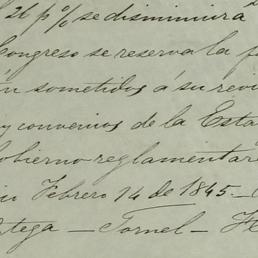 26 p% se disminuira
Congreso se reserva la
sometidos á su
y convenios de la Esta
obierno reglamentar
Febrero 14 de 1845.—
tega — Tornel —